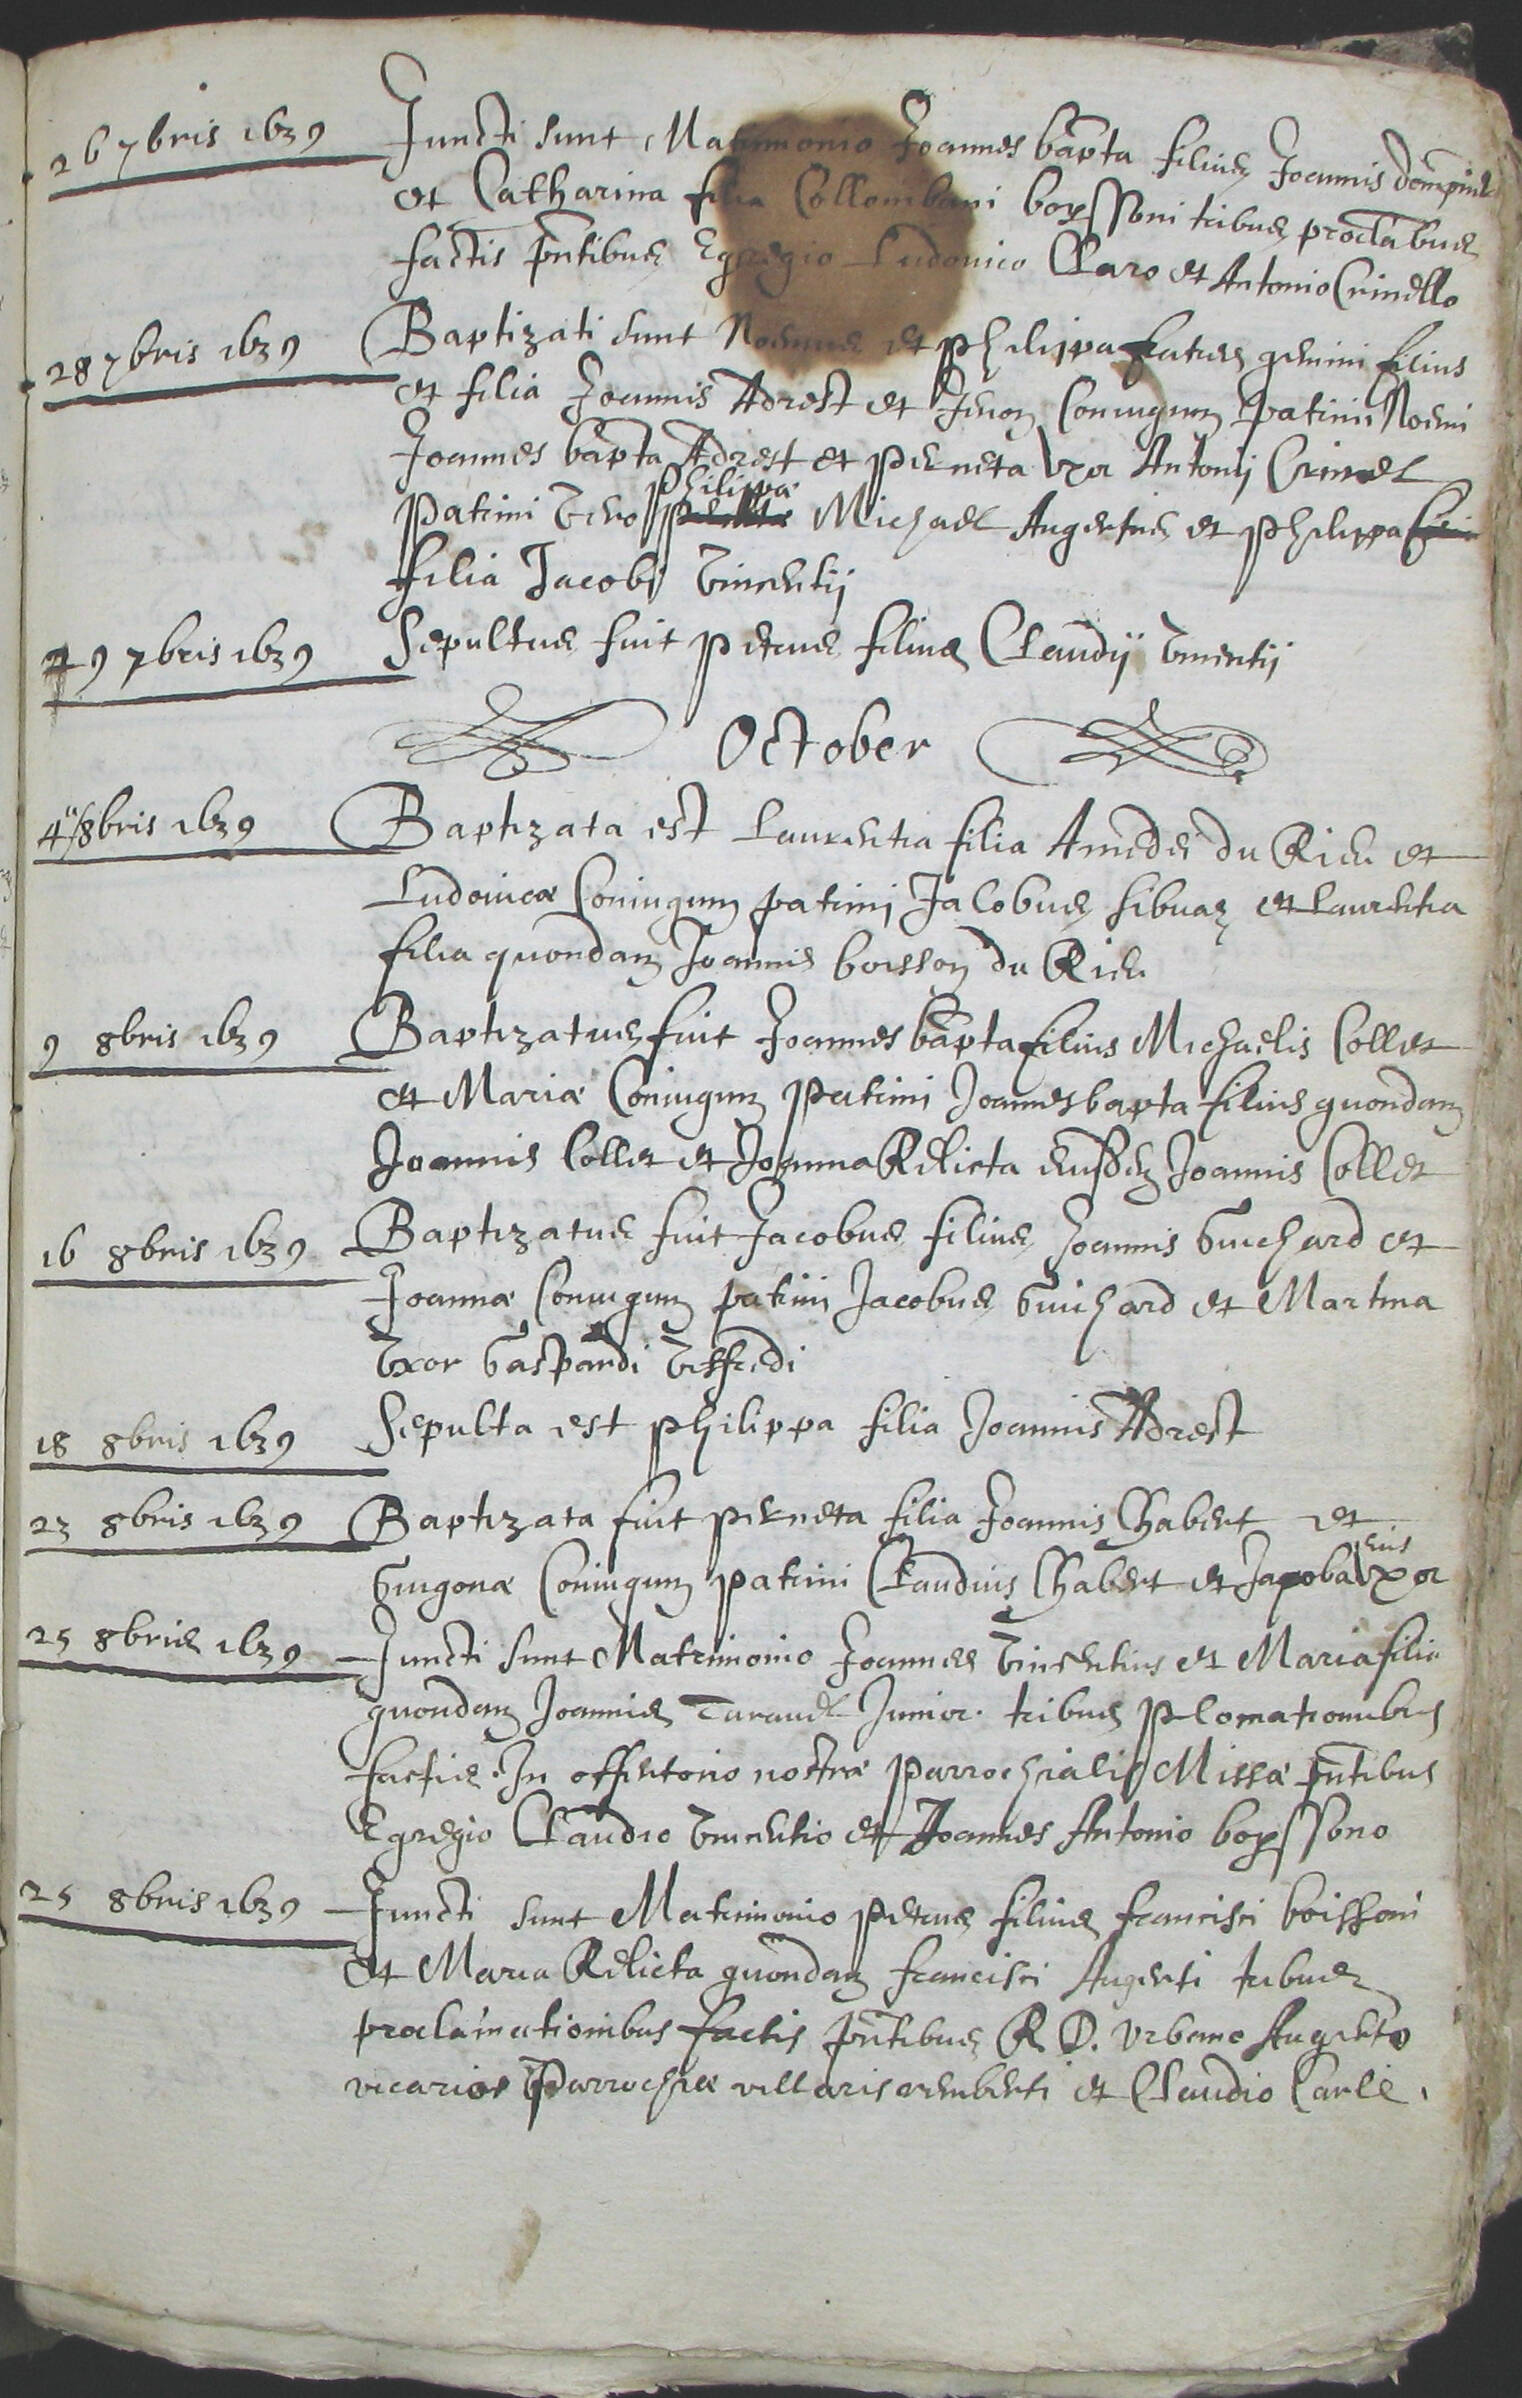 26 7bris 1639 Juncti sunt Matrimonio Joannes bapta filius Joannis dompnie
et Catharina filia Collombani boyssoni tribus proclabus
factis pntibus Egregio Ludovico Claro et Antonio Crinello
28 7bris 1639 Baptizati sunt Noemus et philippa fratres gemini filius
et filia Joannis Adrest et Coniugum patrini Noemi
Joannes bapta Adrest et perneta Vxor Antonij Crinel
philippa
patrini vero Michael Augertus et philippa
filia Jacobi Vincentij
29 7bris 1639 Sepultus fuit petrus filius Claudij Vincentij
October
4 8bris 1639 Baptizata est Laurentia filia Amedei du Rieu et
Ludovicæ Coniugum patrini Jacobus sibuaz et Laurentia
filia quondam Joannis boisson du Rieu
9 8bris 1639 Baptizatus fuit Joannes bapta filius Michaelis Collet
et Mariæ Coniugum patrini Joannes bapta filius quondam
Joannis Collet et Joanna Relicta eiusdem Joannis Collet
16 8bris 1639 Baptizatus fuit Jacobus filius Joannis Guichard et
Joannæ Coniugum patrini Jacobus Guichard et Martina
Vxor Gaspardi
18 8bris 1639 Sepulta est philippa filia Joannis Adrest
23 8bris 1639 Baptizata fuit perneta filia Joannis Chabert et
eius
Guigonæ Coniugum patrini Claudius Chabert et Jacoba Vxor
25 8bris 1639 Juncti sunt Matrimonio Joannes Vincentius et Maria filia
quondam Joannis Taravel Junior. tribus plomationibus
factis In offertorio nostræ parrochialis Missæ pntibus
Egregio Claudio Vincentio et Joannes Antonio boyssono
25 8bris 1639 Juncti sunt Matrimonio petrus filius francisci boissoni
et Maria Relicta quondam francisci Augerti tribus
proclamationibus factis pntibus R D. Vrbano Augerto
vicario parrochiæ villaris remberti et Claudio Carle.